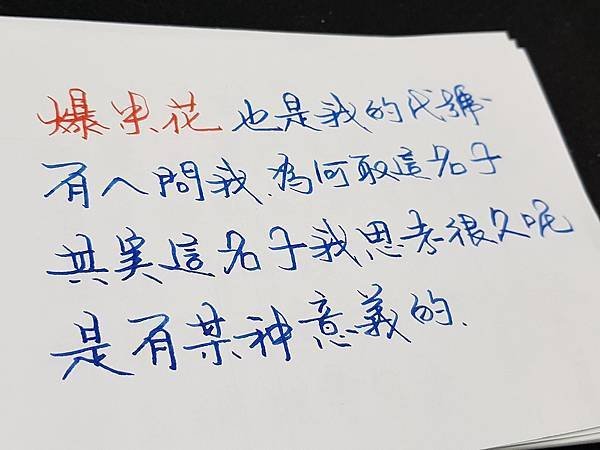 爆米花也是我的代號
有人問我.為何取這名子
其実這名子我思考很久呢
是有某種意義的.